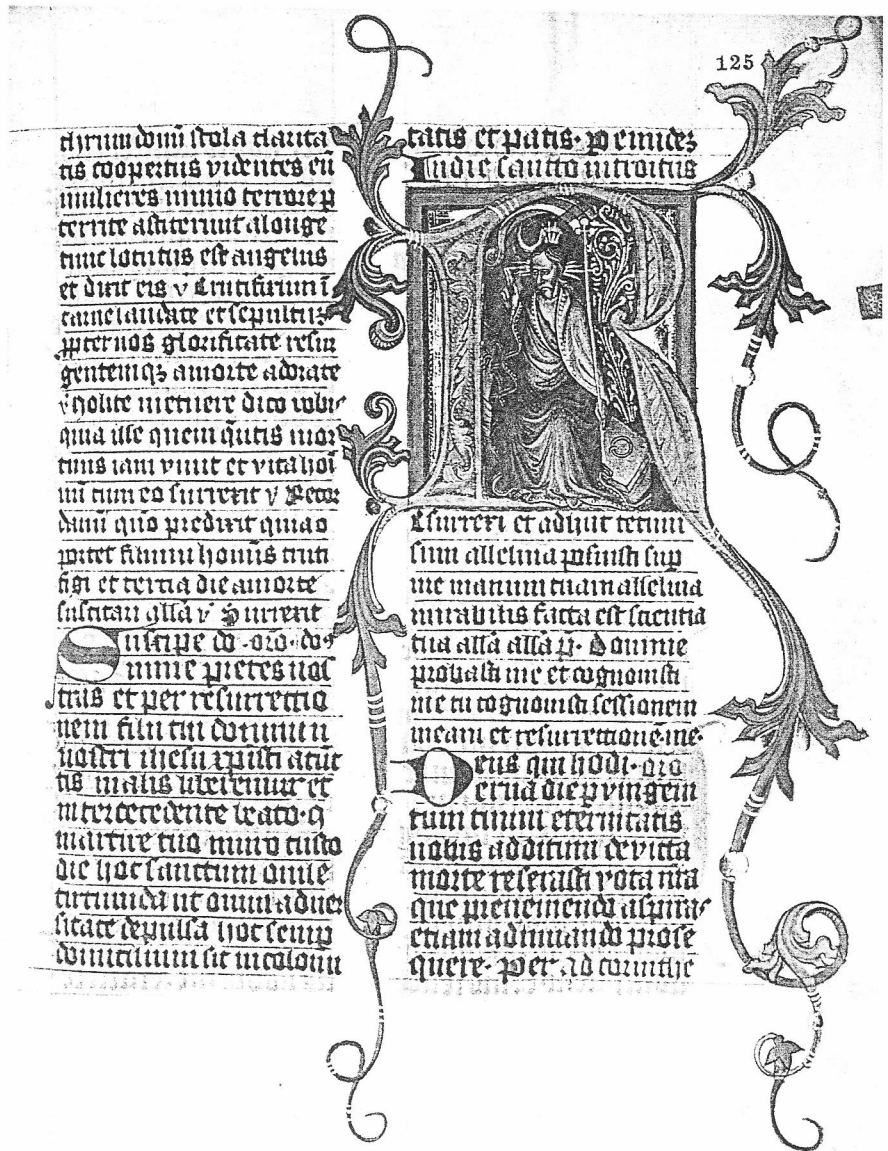 125
chrum domu stola clarita
tis coopertus videntes eu
mulieres nimio terrore p
territe astiterunt alonge
tunc locutus est angelus
et dixit eis v Crucifixum i
carne laudate et sepultuz
ppter nos glorificate resur
gentemqz amorte adorate
v Nolite metuere dico vobis
quia ille quem quitis mor
tuus iam vivit et vita hoi
num cum eo surrexit v Recor
damini quo predixit quia o
portet filium hominis cruci
figi et tertia die amorte
suscitari alla v Surrexit
Suscipe do oro do
mine preces nos
tras et per resurrectio
nem filii tui domini n
nostri ihesu xpristi a
tis malis liberemur et
intercedente beato g
martire tuo muro custo
die hoc sanctum ovile
circumda ut omni adver
sitate depulsa hoc semp
domicilium sit incolomi
tatis et pacis. p eundez
In die sancto introitus
Resurrexi et adhuc tecum
sum alleluia posuisti sup
me manum tuam alleluia
mirabilis facta est scientia
tua alla alla p. Domine
probasti me et cognovisti
me tu cognovisti sessionem
meam et resurrectione me
Deus qui hodi. oro
erna die p vnigeni
tum tuum eternitatis
nobis additum devicta
morte reserasti vota nra
que preveniendo aspiras
etiam adiuvando prose
quere. Per ad corinthe